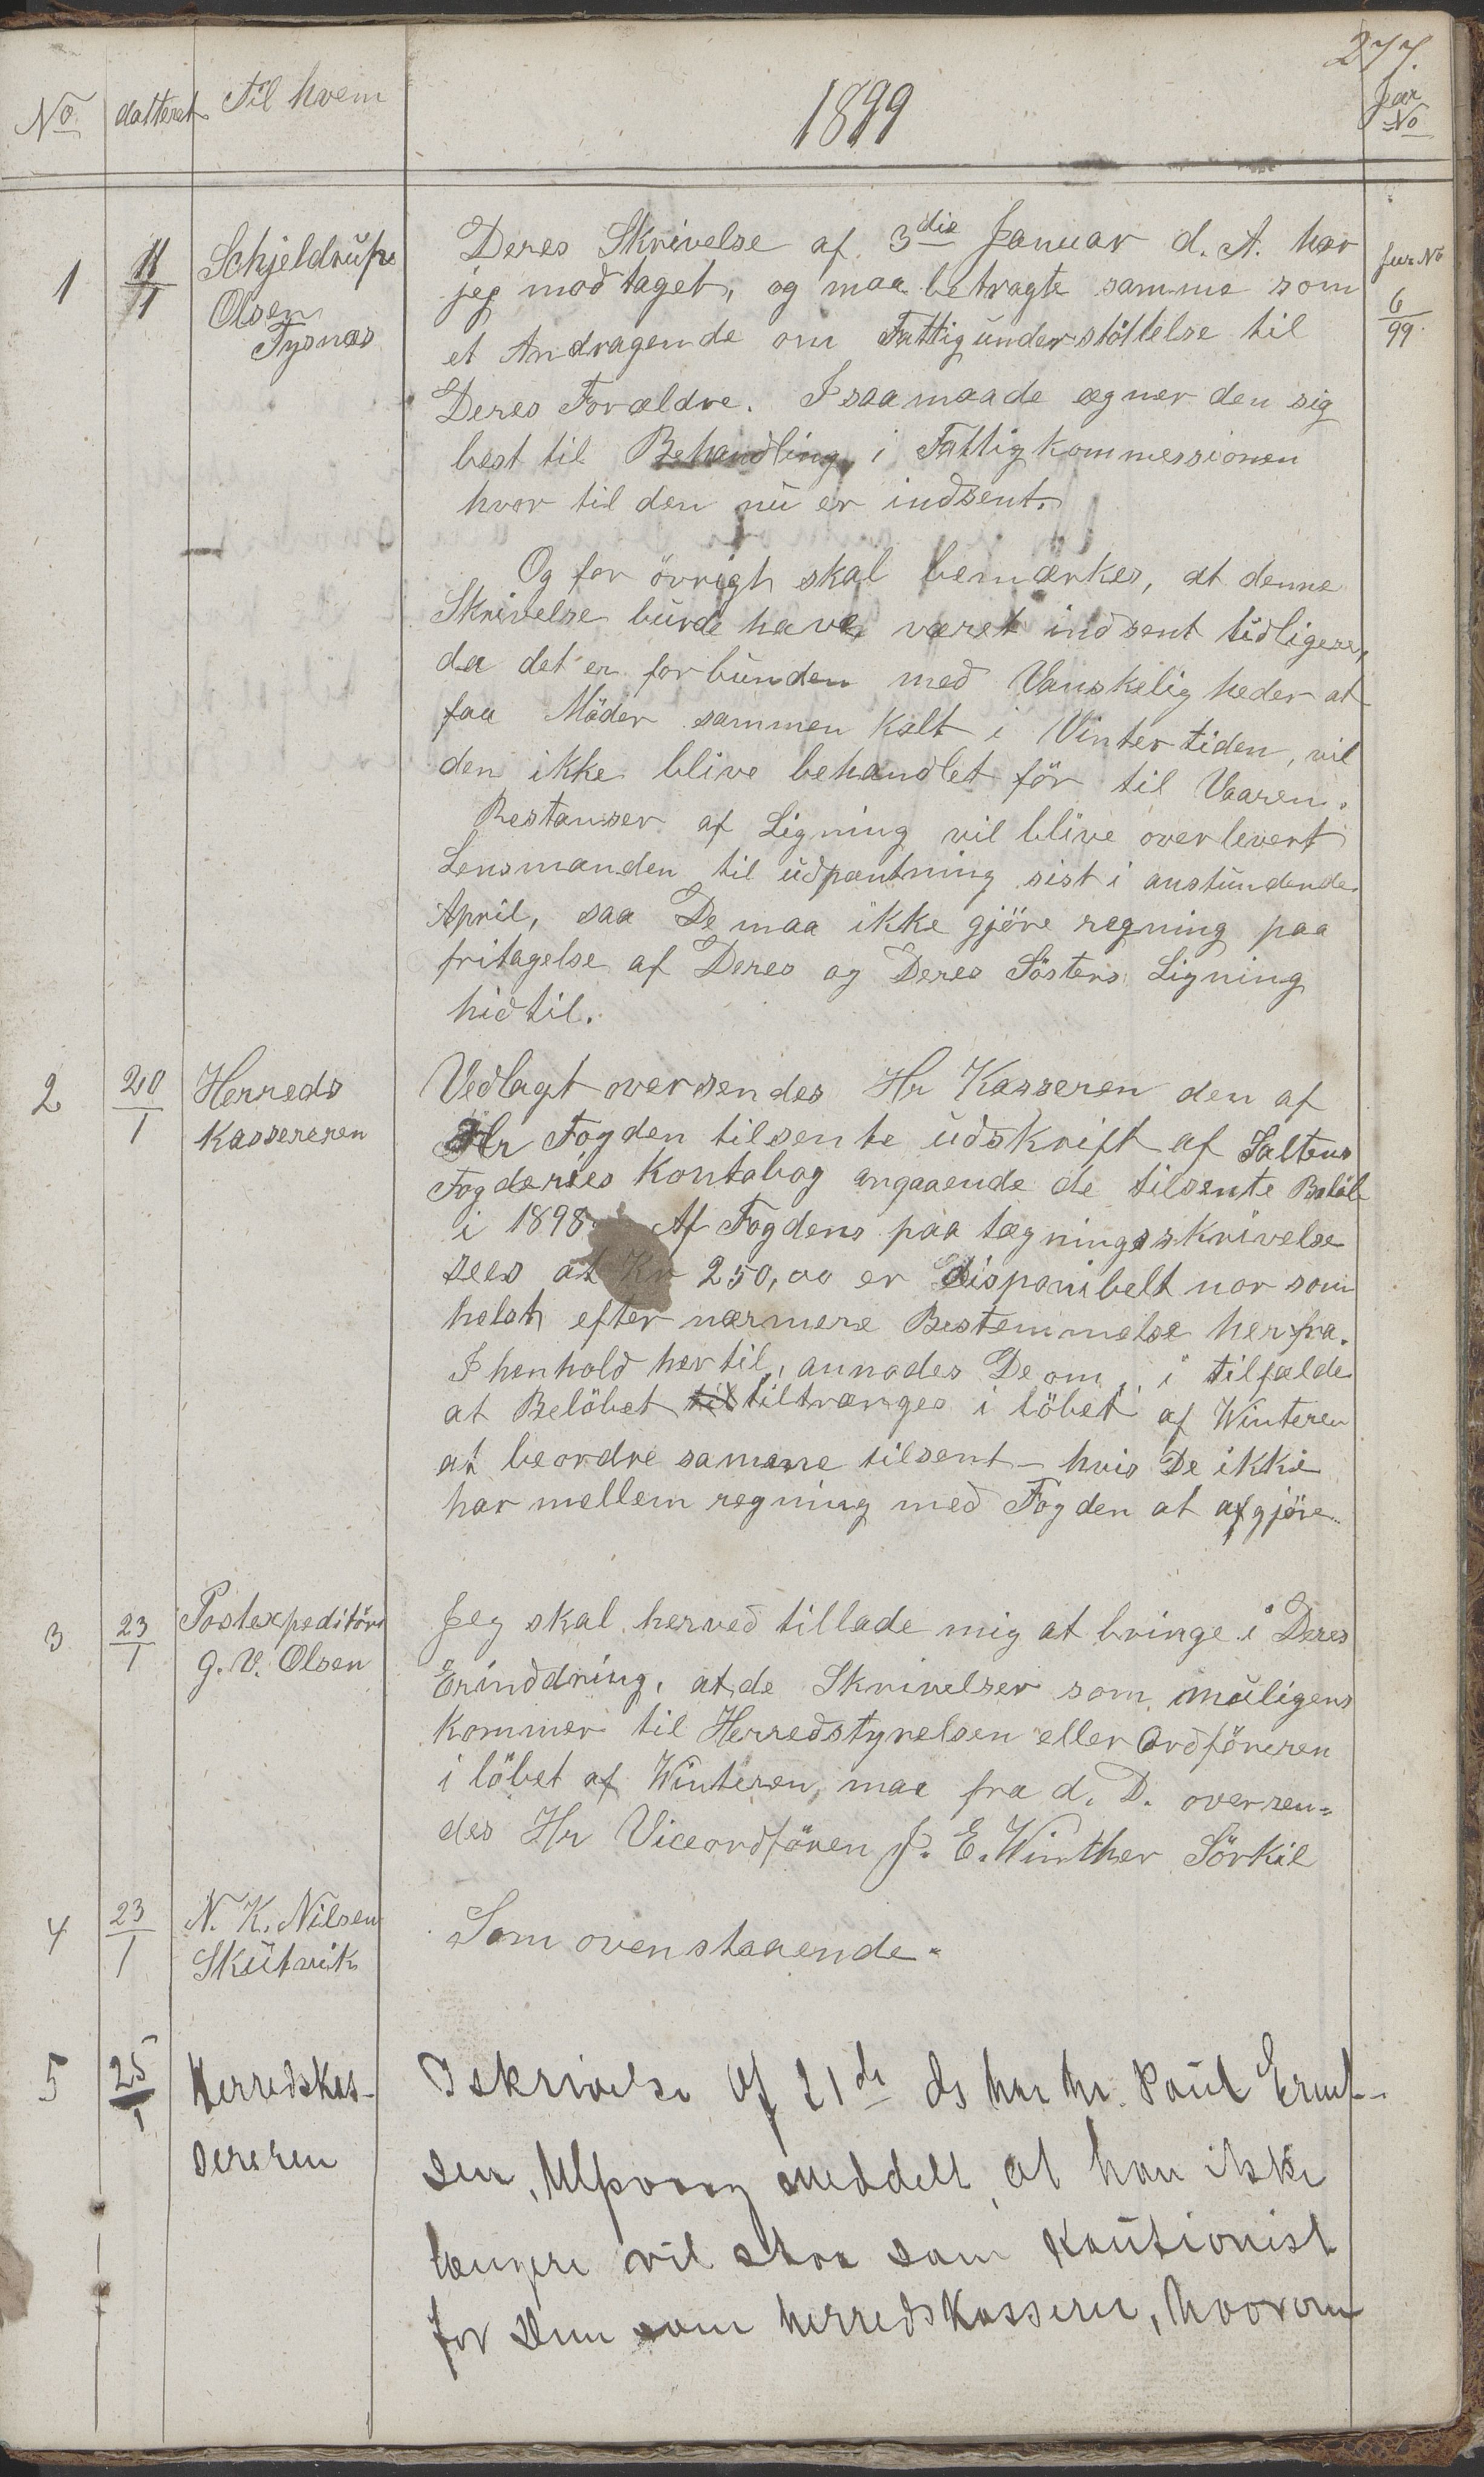 277.
No datteret Til hvem 1899 Jur No
1 11/1 Schjeldrup Olsen Tysnæs
Deres Skrivelse af 3die Januar d. A. har
jeg modtaget, og maa betragte samme som
et Andragende om Fattigunderstöttelse til
Deres Forældre. I saa maade egner den sig
best til Behandling i Fattigkommessionen
hvor til den nu er indsent.
Og for övrigt skal bemærkes, at denne
Skrivelse burde have været indsent tidligere,
da det er forbunden med Vanskeligheder at
faa Möder sammen kalt i Vintertiden, vil
den ikke blive behandlet för til Vaaren.
Restanser af Ligning vil blive overlevert
Lensmanden til udpantning sist i anstundende
April, saa De maa ikke gjöre regning paa
fritagelse af Deres og Deres Sösters Ligning
hidtil.
Jur No 6/99.
2 20/1 Herreds Kassereren
Vedlagt oversendes Hr Kasseren den af
Hr Fogden tilsente udskrift af Saltens
Fogderies Kontabog angaaende de tilsente Belöb
i 1898. Af Fogdens paa tegningsskrivelse
sees at Kr 250,00 er disponibelt nor som
helst efter nærmere Bestemmelse herfra.
I henhold hertil, anmodes De om, i tilfælde
at Belöbet til tiltrænges i löbet af Winteren
at beordre samme tilsent – hvis De ikke
har mellem regning med Fogden at afgjöre.
3 23/1 Postexpeditör G. V. Olsen
Jeg skal herved tillade mig at bringe i Deres
Erinddring, at de Skrivelser som muligens
kommer til Herredstyrelsen eller Ordföreren
i löbet af Winteren, maa fra d. D. oversen=
des Hr Viceordfören J. E. Winther Sörkil
4 23/1 N. K. Nilsen Skutvik
Som ovenstaaende.
5 25/1 Herredskas-sereren
I skrivelse af 21de ds har hr. Paul Ernt-
sen, Ulsvaag meddelt, at han ikke
længere vil staa som Kautionist
for Dem som herredskasserer, hvorom